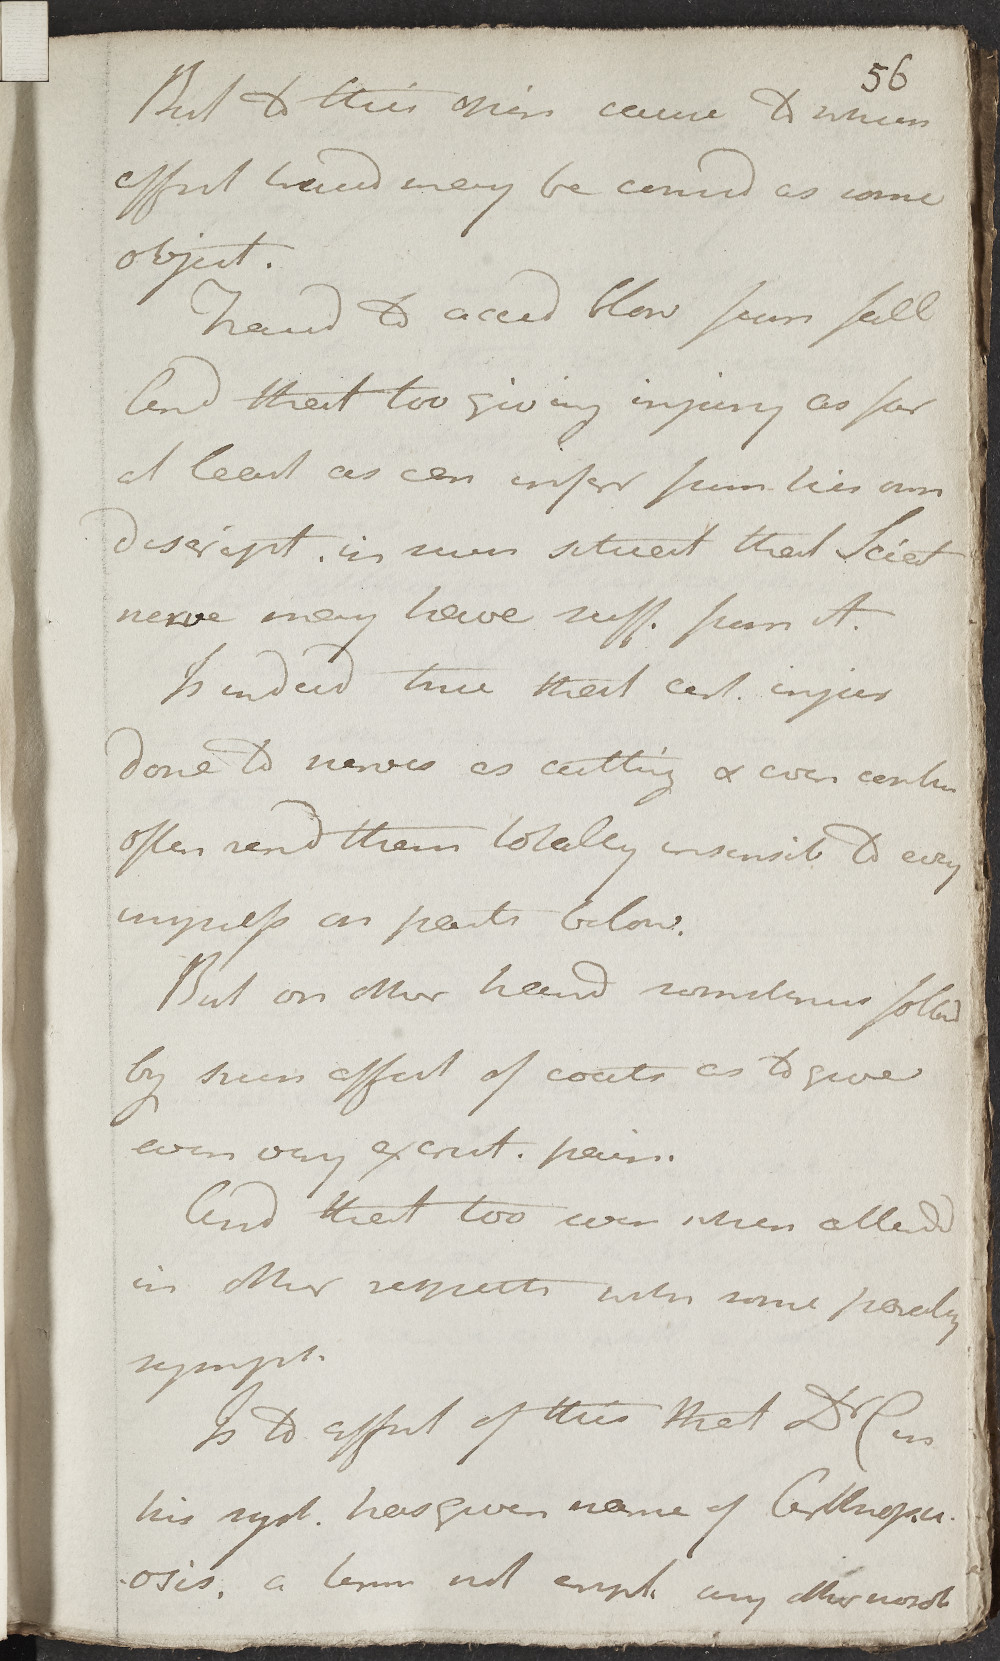 56
But to this opin cause to whose
effect have may be consid as some
object.
Had to acced blow from fall
And that too giving injury as far
at least as can infer from his own
descript. in such situat that Sciat
nerve may have suff. from it.
Is indeed true that cert. injur
done to nerves as cutting & even
often rend them totally insensib to every
impress on parts below.
But on other hand sometimes folld
by such effect of coats as to give
even very excrut. pain.
And that too even when attend
in other respects with some paraly
sympt.
Is to effect of this that Dr C in
his syst. has given name of Arthropu-
osis. a term not empl. any other nosol